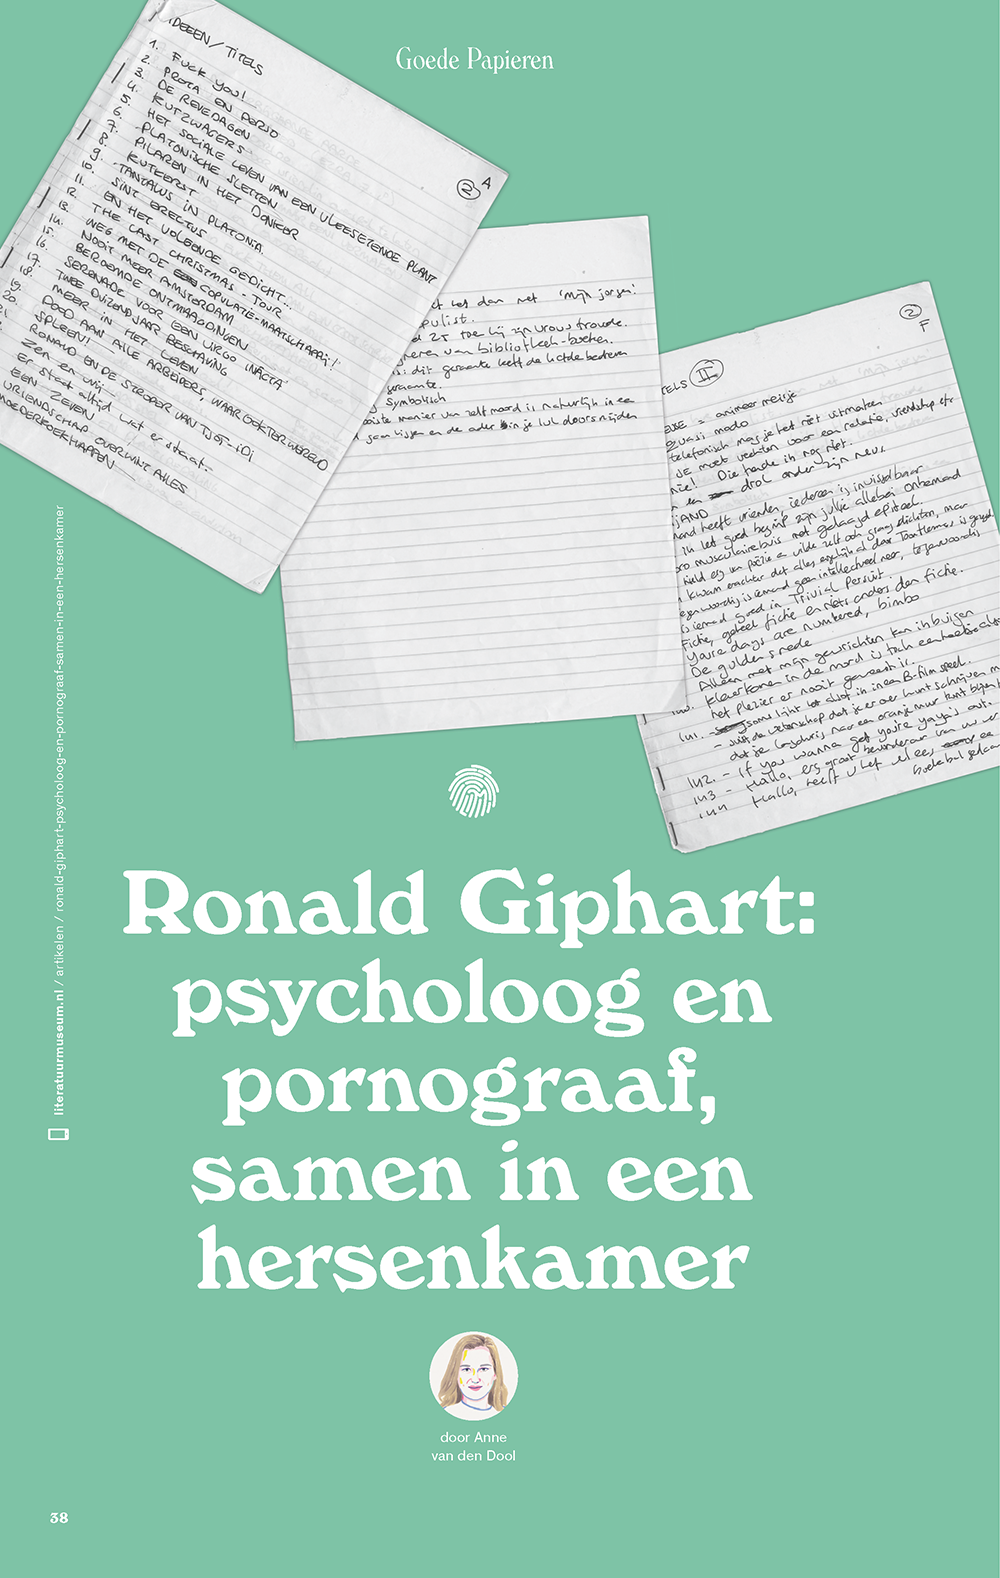 Goede Papieren
IDEEEN / TITELS
A
2
1. FUCK YOU!
2. PROZA EN PORZO
3. DE REVEDAGEN
4. KUTZWAGERS
5. HET SOCIALE LEVEN VAN EEN VLEESETENDE PLANT
6. PLATONISCHE SLETTEN
7. PILAREN IN HET DONKER
8. KUTKERST
9. TANTALUS IN PLATONIA
10. SINT ERECTUS
11. EN HET VOLGENDE GEDICHT...
12. THE LAST CHRISTMAS-TOUR
13. WEG MET DE COPULATIE-MAATSCHAPPIJ!
14. NOOIT MEER AMSTERDAM
15. BEROEMDE ONTMAAGDINGEN
16. SERENADE VOOR EEN VIRGO INTACTA
17. TWEE DUIZEND JAAR BESCHAVING
18. MEER IN HET LEVEN
19. DOOD AAN ALLE ARBEIDERS, WAAR OOK TER WERELD
20. SPLEEN!
RONALD EN DE STROPER VAN TJOT-IDI
Zen en wij
Er staat altijd wat er staat..
EEN ZEVEN
VRIENDSCHAP OVERWINT ALLES
MOEDERKOEKHAPPEN
het dan met 'mijn jongen'
pulist.
25 toe hij zijn vrouw trouwde.
neren van bibliotheek-boeken.
dit geraamte heeft de lichtekooien
geraamte.
Symbolisch
manier van zelfmoord is natuurlijk in een
gaan liggen en de ader in je lul doorsnijden
2
F
TELS II
= animeermeisje
quasi modo
telefonisch mag je het niet uitmaken
Je moet vechten voor een relatie, vriendschap etc.
nie! Die hadde ik nog niet.
en drol onder zijn neus
JAND
mand heeft vrienden, iedereen is inwisselbaar
ik het goed begrijp zijn jullie allebei onbemand
musculaire buis met gelaagd epiteel.
hield erg van poëzie en wilde zelf ook graag dichten, maar
kwam erachter dat alles eigenlijk al door Toon Hermans is gezegd
egenwoordig is iemand geen intellectueel meer, tegenwoordig
is iemand goed in Trivial Persuit.
Fictie, geheel fictie en niets anders dan fictie.
Youre days are numbered, bimbo
De gulden snede
Alleen met mijn gewrichten kan ik buigen
Klaarkomen in de mond is toch een
het plezier er nooit geweest is.
soms lijkt het alsof ik in een B-film speel.
142. - If you wanna get youre yaya's out.
143 - Hallo, erg groot bewonderaar van uw
144 Hallo, heeft u het vlees
literatuurmuseum.nl / artikelen / ronald-giphart-psycholoog-en-pornograaf-samen-in-een-hersenkamer
Ronald Giphart:
psycholoog en
pornograaf,
samen in een
hersenkamer
door Anne
van den Dool
38